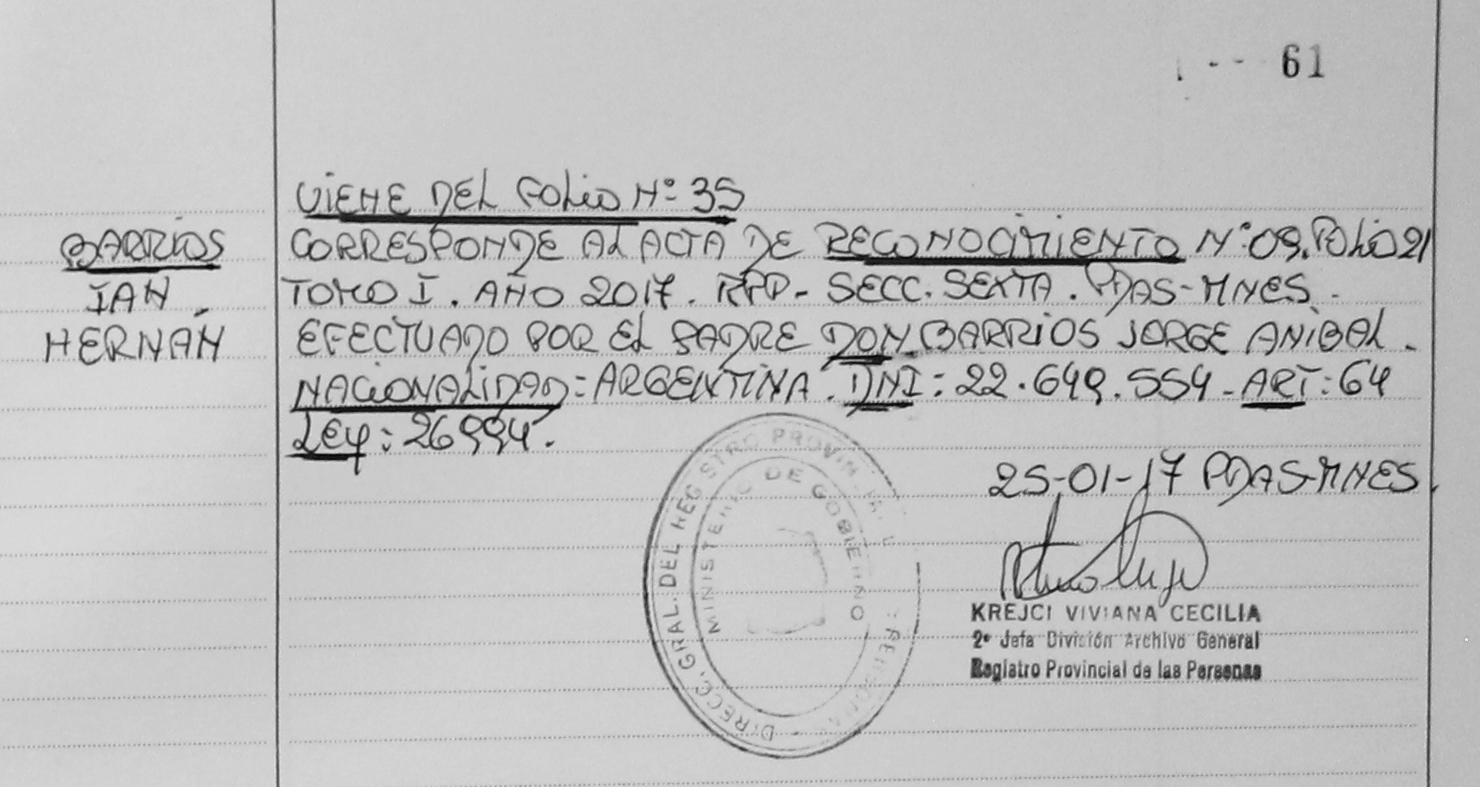 61
VIENE DEL FOLIO Nº 35
BARRIOS
IAN
HERNÁN
CORRESPONDE AL ACTA DE RECONOCIMIENTO Nº: 09. FOLIO 21
TOMO I. AÑO 2017. RPP- SECC. SEXTA. PDAS-MNES.
EFECTUADO POR EL PADRE DON BARRIOS JORGE ANIBAL.
NACIONALIDAD: ARGENTINA. DNI: 22.649.554- ART: 64
LEY: 26994.
25-01-17 PDAS-MNES.
DIRECC. GRAL. DEL REGISTRO
MINISTERIO DE GOBIERNO
KREJCI VIVIANA CECILIA
2º Jefa División Archivo General
Registro Provincial de las Personas